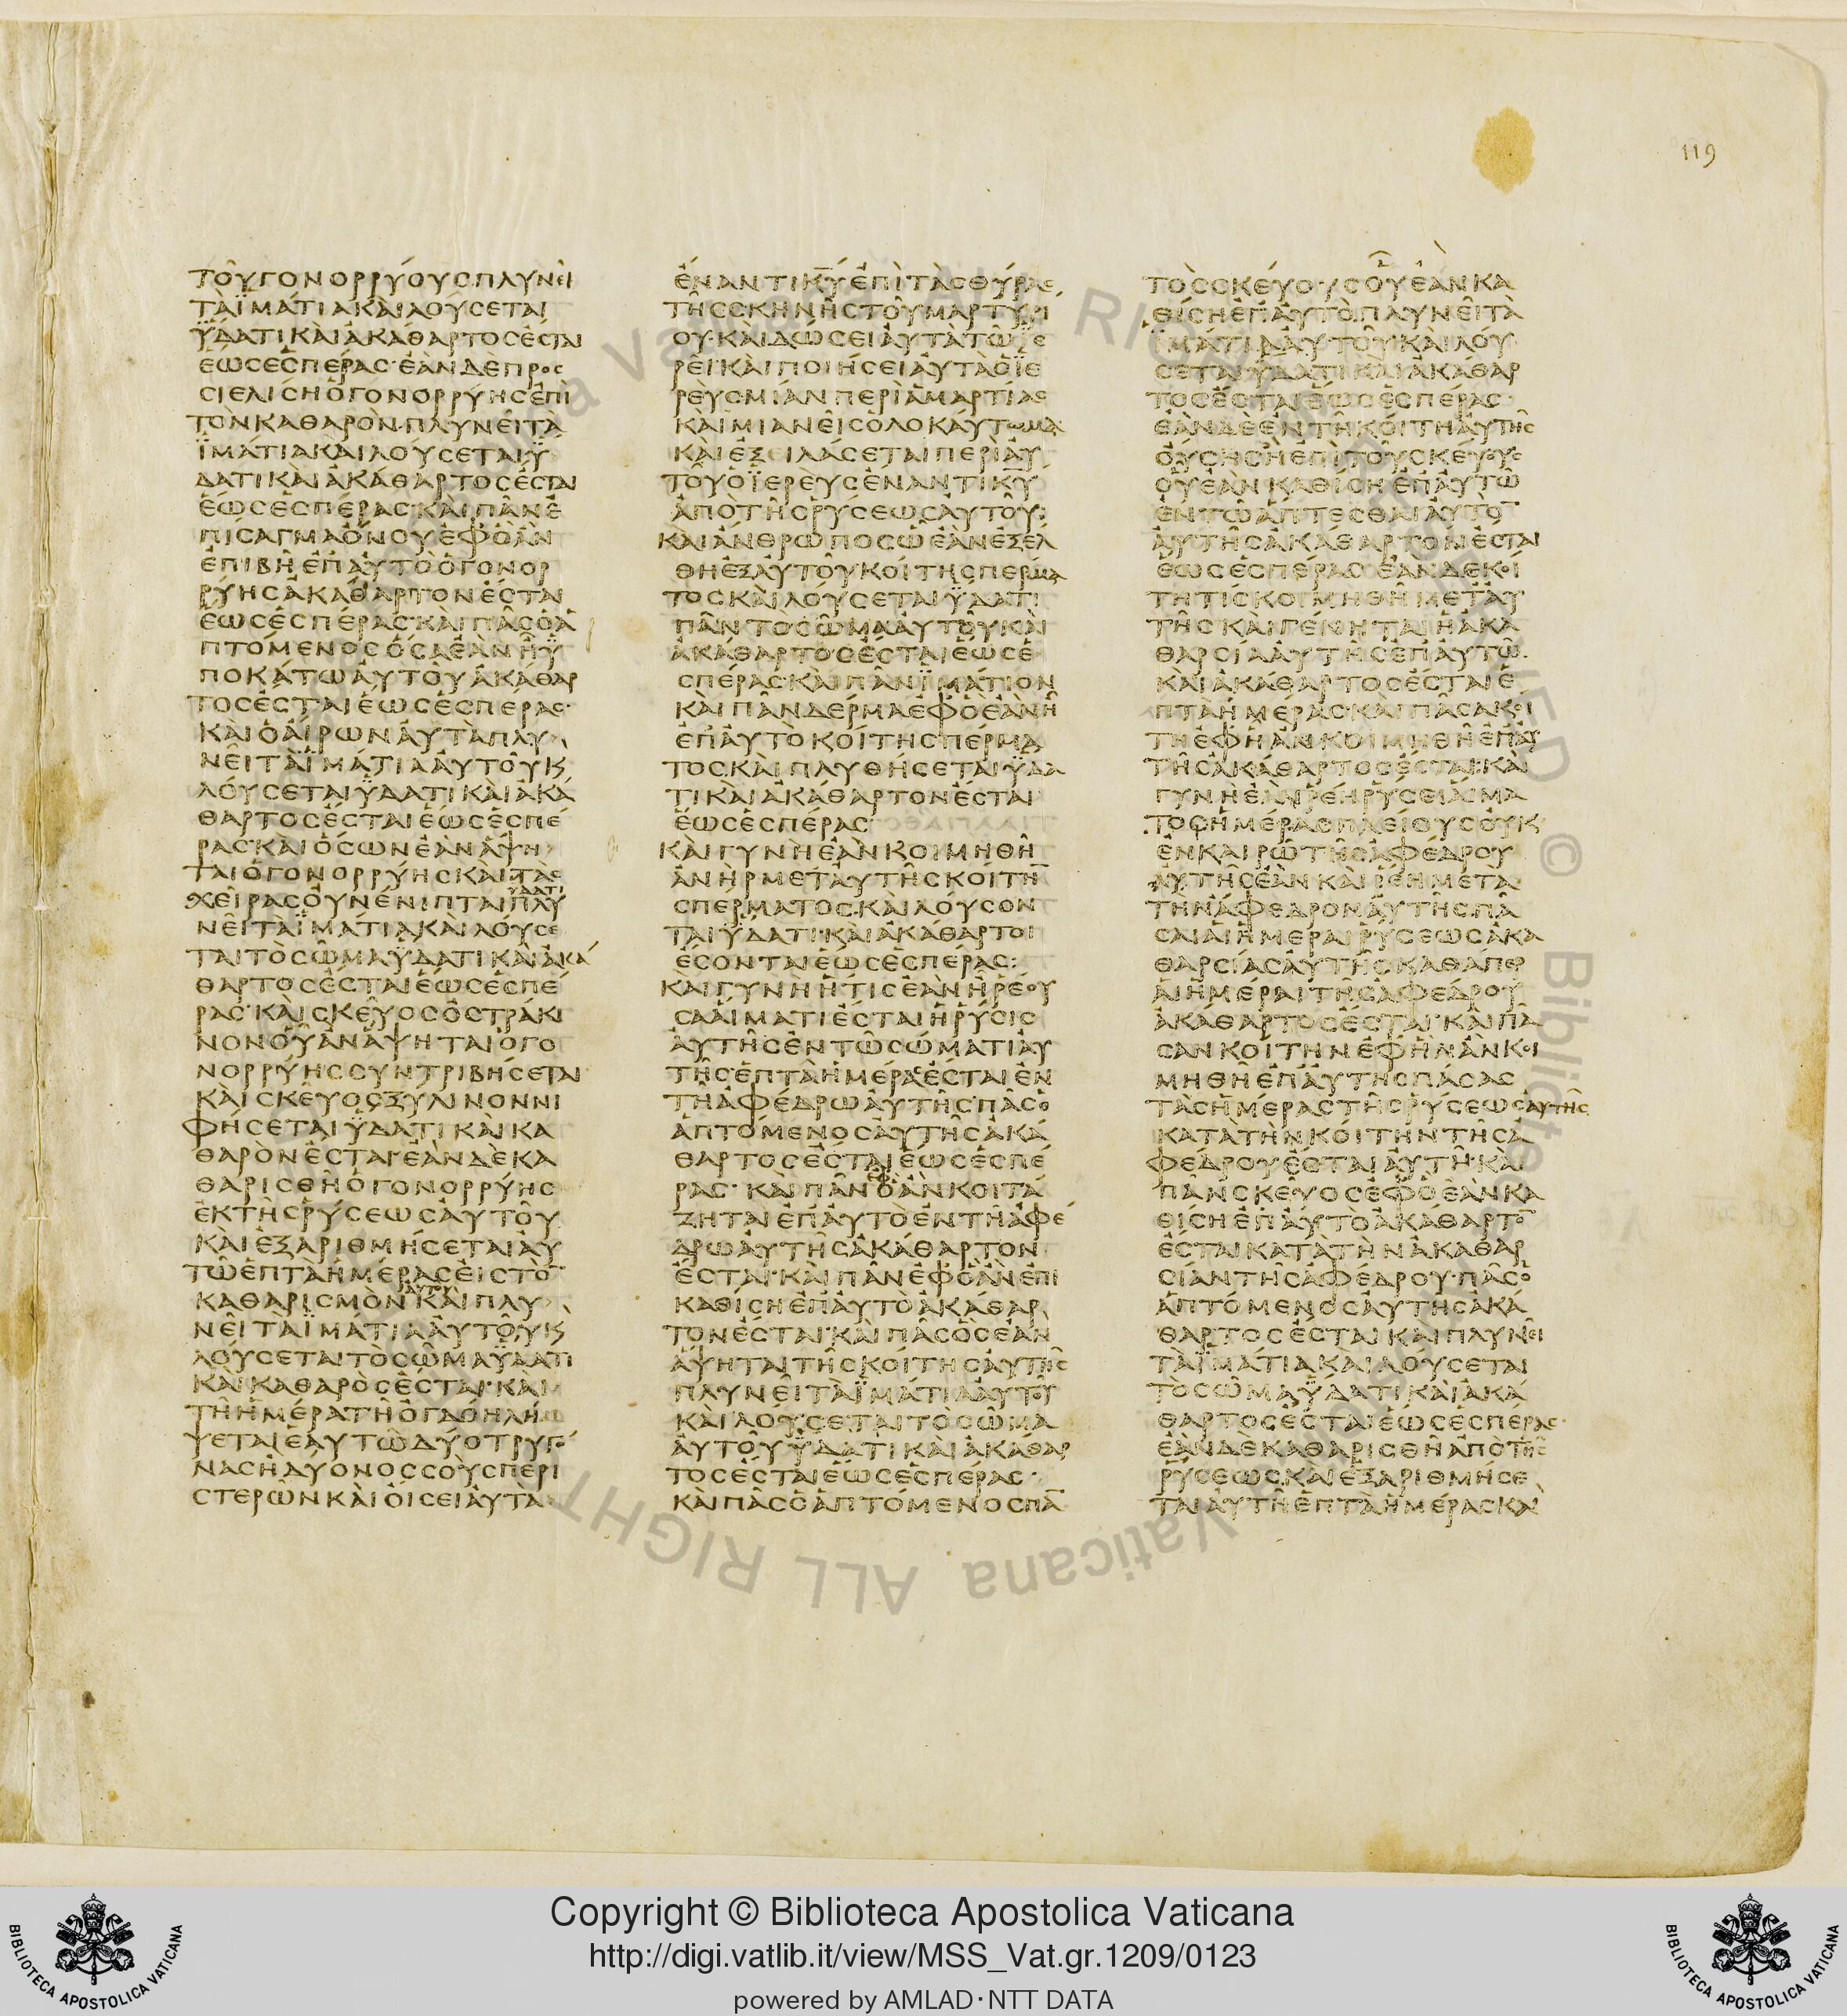 119
ΤΟΥΓΟΝΟΡΡΥΟΥΣΠΛΥΝΕΙ
ΤΑΪΜΑΤΙΑΚΑΙΛΟΥΣΕΤΑΙ
ΫΔΑΤΙΚΑΙΑΚΑΘΑΡΤΟΣΕΣΤΑΙ
ΕΩΣΕΣΠΕΡΑΣ·ΕΑΝΔΕΠΡΟΣ
ΣΙΕΛΙΣΗΟΓΟΝΟΡΡΥΗΣΕΠΙ
ΤΟΝΚΑΘΑΡΟΝ·ΠΛΥΝΕΙΤΑ
ΪΜΑΤΙΑΚΑΙΛΟΥΣΕΤΑΙΫ
ΔΑΤΙΚΑΙΑΚΑΘΑΡΤΟΣΕΣΤΑΙ
ΕΩΣΕΣΠΕΡΑΣ·ΚΑΙΠΑΝΕ
ΠΙΣΑΓΜΑΟΝΟΥΕΦΟΑΝ
ΕΠΙΒΗΕΠΑΥΤΟΟΓΟΝΟΡ
ΡΥΗΣΑΚΑΘΑΡΤΟΝΕΣΤΑΙ
ΕΩΣΕΣΠΕΡΑΣ·ΚΑΙΠΑΣΟΑ
ΠΤΟΜΕΝΟΣΟΣΑΕΑΝΗΫ
ΠΟΚΑΤΩΑΥΤΟΥΑΚΑΘΑΡ
ΤΟΣΕΣΤΑΙΕΩΣΕΣΠΕΡΑΣ·
ΚΑΙΟΑΙΡΩΝΑΥΤΑΠΛΥ
ΝΕΙΤΑΪΜΑΤΙΑΑΥΤΟΥΚ
ΛΟΥΣΕΤΑΙΫΔΑΤΙΚΑΙΑΚΑ
ΘΑΡΤΟΣΕΣΤΑΙΕΩΣΕΣΠΕ
ΡΑΣ·ΚΑΙΟΣΩΝΕΑΝΑΨΗ
ΤΑΙΟΓΟΝΟΡΡΥΗΣΚΑΙΤΑΣ
ΥΔΑΤΙ
ΧΕΙΡΑΣΟΥΝΕΝΙΠΤΑΙΠΛΥ
ΝΕΙΤΑΪΜΑΤΙΑΚΑΙΛΟΥΣΕ
ΤΑΙΤΟΣΩΜΑΫΔΑΤΙΚΑΙΑΚΑ
ΘΑΡΤΟΣΕΣΤΑΙΕΩΣΕΣΠΕ
ΡΑΣ·ΚΑΙΣΚΕΥΟΣΟΣΤΡΑΚΙ
ΝΟΝΟΥΑΝΑΨΗΤΑΙΟΓΟ
ΝΟΡΡΥΗΣΣΥΝΤΡΙΒΗΣΕΤΑΙ
ΚΑΙΣΚΕΥΟΣΞΥΛΙΝΟΝΝΙ
ΦΗΣΕΤΑΙΫΔΑΤΙΚΑΙΚΑ
ΘΑΡΟΝΕΣΤΑΙ·ΕΑΝΔΕΚΑ
ΘΑΡΙΣΘΗΟΓΟΝΟΡΡΥΗΣ
ΕΚΤΗΣΡΥΣΕΩΣΑΥΤΟΥ
ΚΑΙΕΞΑΡΙΘΜΗΣΕΤΑΙΑΥ
ΤΩΕΠΤΑΗΜΕΡΑΣΕΙΣΤΟ
ΚΑΘΑΡΙΣΜΟΝΚΑΙΠΛΥ
ΝΕΙΤΑΪΜΑΤΙΑΑΥΤΟΥΚ
ΛΟΥΣΕΤΑΙΤΟΣΩΜΑΫΔΑΤΙ
ΚΑΙΚΑΘΑΡΟΣΕΣΤΑΙ·ΚΑΙ
ΤΗΗΜΕΡΑΤΗΟΓΔΟΗΛΗΜ
ΨΕΤΑΙΕΑΥΤΩΔΥΟΤΡΥΓΟ
ΝΑΣΗΔΥΟΝΟΣΣΟΥΣΠΕΡΙ
ΣΤΕΡΩΝΚΑΙΟΙΣΕΙΑΥΤΑ
ΕΝΑΝΤΙΚΥΕΠΙΤΑΣΘΥΡΑΣ
ΤΗΣΣΚΗΝΗΣΤΟΥΜΑΡΤΥΡΙ
ΟΥ·ΚΑΙΔΩΣΕΙΑΥΤΑΤΩΪΕ
ΡΕΙ·ΚΑΙΠΟΙΗΣΕΙΑΥΤΑΟΪΕ
ΡΕΥΣΜΙΑΝΠΕΡΙΑΜΑΡΤΙΑΣ
ΚΑΙΜΙΑΝΕΙΣΟΛΟΚΑΥΤΩΜΑ·
ΚΑΙΕΞΕΙΛΑΣΕΤΑΙΠΕΡΙΑΥ
ΤΟΥΟΪΕΡΕΥΣΕΝΑΝΤΙΚΥ
ΑΠΟΤΗΣΡΥΣΕΩΣΑΥΤΟΥ:
ΚΑΙΑΝΘΡΩΠΟΣΩΕΑΝΕΞΕΛ
ΘΗΕΞΑΥΤΟΥΚΟΙΤΗΣΠΕΡΜΑ
ΤΟΣΚΑΙΛΟΥΣΕΤΑΙΫΔΑΤΙ
ΠΑΝΤΟΣΩΜΑΑΥΤΟΥΚΑΙ
ΑΚΑΘΑΡΤΟΣΕΣΤΑΙΕΩΣΕ
ΣΠΕΡΑΣΚΑΙΠΑΝΪΜΑΤΙΟΝ
ΚΑΙΠΑΝΔΕΡΜΑΕΦΟΕΑΝΗ
ΕΠΑΥΤΟΚΟΙΤΗΣΠΕΡΜΑ
ΤΟΣ·ΚΑΙΠΛΥΘΗΣΕΤΑΙΫΔΑ
ΤΙΚΑΙΑΚΑΘΑΡΤΟΝΕΣΤΑΙ
ΕΩΣΕΣΠΕΡΑΣ
ΚΑΙΓΥΝΗΕΑΝΚΟΙΜΗΘΗ
ΑΝΗΡΜΕΤΑΥΤΗΣΚΟΙΤΗ
ΣΠΕΡΜΑΤΟΣ·ΚΑΙΛΟΥΣΟΝ
ΤΑΙΫΔΑΤΙ·ΚΑΙΑΚΑΘΑΡΤΟΙ
ΕΣΟΝΤΑΙΕΩΣΕΣΠΕΡΑΣ:
ΚΑΙΓΥΝΗΗΤΙΣΕΑΝΗΡΕΟΥ
ΣΑΑΙΜΑΤΙΕΣΤΑΙΗΡΥΣΙΣ
ΑΥΤΗΣΕΝΤΩΣΩΜΑΤΙΑΥ
ΤΗΣ·ΕΠΤΑΗΜΕΡΑΣΕΣΤΑΙΕΝ
ΤΗΑΦΕΔΡΩΑΥΤΗΣ·ΠΑΣΟ
ΑΠΤΟΜΕΝΟΣΑΥΤΗΣΑΚΑ
ΘΑΡΤΟΣΕΣΤΑΙΕΩΣΕΣΠΕ
ΕΦ
ΡΑΣ·ΚΑΙΠΑΝΟΑΝΚΟΙΤΑ
ΖΗΤΑΙΕΠΑΥΤΟΕΝΤΗΑΦΕ
ΔΡΩΑΥΤΗΣΑΚΑΘΑΡΤΟΝ
ΕΣΤΑΙ·ΚΑΙΠΑΝΕΦΟΑΝΕΠΙ
ΚΑΘΙΣΗΕΠΑΥΤΟΑΚΑΘΑΡ
ΤΟΝΕΣΤΑΙ·ΚΑΙΠΑΣΟΣΕΑΝ
ΑΨΗΤΑΙΤΗΣΚΟΙΤΗΣΑΥΤΗΣ
ΠΛΥΝΕΙΤΑΪΜΑΤΙΑΑΥΤΟΥ
ΚΑΙΛΟΥΣΕΤΑΙΤΟΣΩΜΑ
ΑΥΤΟΥΫΔΑΤΙΚΑΙΑΚΑΘΑΡ
ΤΟΣΕΣΤΑΙΕΩΣΕΣΠΕΡΑΣ·
ΚΑΙΠΑΣΟΑΠΤΟΜΕΝΟΣΠΑ
ΤΟΣΣΚΕΥΟΥΣΟΥΕΑΝΚΑ
ΘΙΣΗΕΠΑΥΤΟ·ΠΛΥΝΕΙΤΑ
ΪΜΑΤΙΑΑΥΤΟΥ·ΚΑΙΛΟΥ
ΣΕΤΑΙΫΔΑΤΙΚΑΙΑΚΑΘΑΡ
ΤΟΣΕΣΤΑΙΕΩΣΕΣΠΕΡΑΣ·
ΕΑΝΔΕΕΝΤΗΚΟΙΤΗΑΥΤΗΣ
ΟΥΣΗΣΗΕΠΙΤΟΥΣΚΕΥΟΥΣ
ΟΥΕΑΝΚΑΘΙΣΗΕΠΑΥΤΩ
ΕΝΤΩΑΠΤΕΣΘΑΙΑΥΤΟ
ΑΥΤΗΣΑΚΑΘΑΡΤΟΝΕΣΤΑΙ
ΕΩΣΕΣΠΕΡΑΣ·ΕΑΝΔΕΚΟΙ
ΤΗΤΙΣΚΟΙΜΗΘΗΜΕΤΑΥ
ΤΗΣΚΑΙΓΕΝΗΤΑΙΗΑΚΑ
ΘΑΡΣΙΑΑΥΤΗΣΕΠΑΥΤΩ·
ΚΑΙΑΚΑΘΑΡΤΟΣΕΣΤΑΙΕ
ΠΤΑΗΜΕΡΑΣ·ΚΑΙΠΑΣΑΚΟΙ
ΤΗΕΦΗΑΝΚΟΙΜΗΘΗΕΠΑΥ
ΤΗΣΑΚΑΘΑΡΤΟΣΕΣΤΑΙ:ΚΑΙ
ΓΥΝΗΕΑΝΡΕΗΡΥΣΕΙΑΙΜΑ
ΤΟΣΗΜΕΡΑΣΠΛΕΙΟΥΣΟΥΚ
ΕΝΚΑΙΡΩΤΗΣΑΦΕΔΡΟΥ
ΑΥΤΗΣΕΑΝΚΑΙΡΕΗΜΕΤΑ
ΤΗΝΑΦΕΔΡΟΝΑΥΤΗΣ·ΠΑ
ΣΑΙΑΙΗΜΕΡΑΙΡΥΣΕΩΣΑΚΑ
ΘΑΡΣΙΑΣΑΥΤΗΣΚΑΘΑΠΕΡ
ΑΙΗΜΕΡΑΙΤΗΣΑΦΕΔΡΟΥ
ΑΚΑΘΑΡΤΟΣΕΣΤΑΙ·ΚΑΙΠΑ
ΣΑΝΚΟΙΤΗΝΕΦΗΝΑΝΚΟΙ
ΜΗΘΗΕΠΑΥΤΗΣΠΑΣΑΣ
ΤΑΣΗΜΕΡΑΣΤΗΣΡΥΣΕΩΣΑΥΤΗΣ
ΚΑΤΑΤΗΝΚΟΙΤΗΝΤΗΣΑ
ΦΕΔΡΟΥΕΣΤΑΙΑΥΤΗ·ΚΑΙ
ΠΑΝΣΚΕΥΟΣΕΦΟΕΑΝΚΑ
ΘΙΣΗΕΠΑΥΤΟΑΚΑΘΑΡΤΟ
ΕΣΤΑΙΚΑΤΑΤΗΝΑΚΑΘΑΡ
ΣΙΑΝΤΗΣΑΦΕΔΡΟΥ·ΠΑΣΟ
ΑΠΤΟΜΕΝΟΣΑΥΤΗΣΑΚΑ
ΘΑΡΤΟΣΕΣΤΑΙΚΑΙΠΛΥΝΕΙ
ΤΑΪΜΑΤΙΑΚΑΙΛΟΥΣΕΤΑΙ
ΤΟΣΩΜΑΫΔΑΤΙΚΑΙΑΚΑ
ΘΑΡΤΟΣΕΣΤΑΙΕΩΣΕΣΠΕΡΑΣ·
ΕΑΝΔΕΚΑΘΑΡΙΣΘΗΑΠΟΤΗΣ
ΡΥΣΕΩΣ·ΚΑΙΕΞΑΡΙΘΜΗΣΕ
ΤΑΙΑΥΤΗΕΠΤΑΗΜΕΡΑΣΚΑΙ
Copyright © Biblioteca Apostolica Vaticana
http://digi.vatlib.it/view/MSS_Vat.gr.1209/0123
powered by AMLAD·NTT DATA
BIBLIOTECA APOSTOLICA VATICANA
BIBLIOTECA APOSTOLICA VATICANA